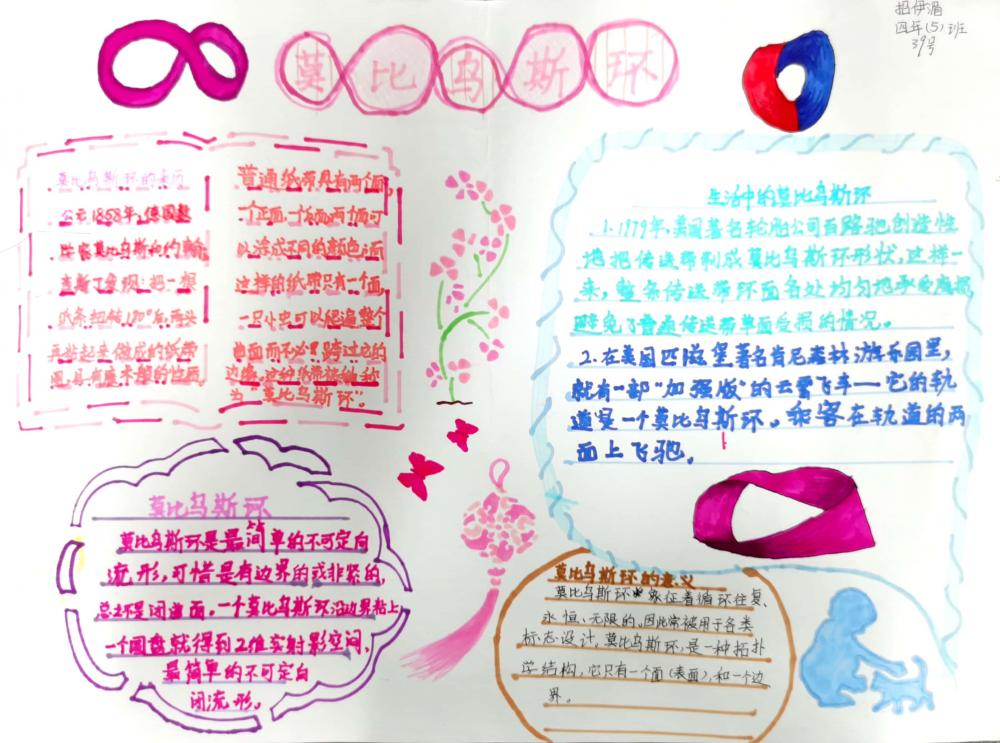 招伊湄
四年(5)班
39号
莫比乌斯环
莫比乌斯环的来历
公元1858年,德国数
学家莫比乌斯和约翰·
李斯丁发现:把一根
纸条扭转180°后,两头
再粘起来做成的纸带
圈,具有魔术般的性质。
普通纸带具有两个面,
一个正面,一个反面,两个面可
以涂成不同的颜色;而
这样的纸带只有一个面,
一只小虫可以爬遍整个
曲面而不必跨过它的
边缘。这种纸带被称
为“莫比乌斯环”。
生活中的莫比乌斯环
1.1979年,美国著名轮胎公司百路驰创造性
地把传送带制成莫比乌斯环形状,这样一
来,整条传送带环面各处均匀地承受磨损,
避免了普通传送带单面受损的情况。
2.在美国匹兹堡著名肯尼森林游乐园里,
就有一部“加强版”的云霄飞车—它的轨
道是一个莫比乌斯环。乘客在轨道的两
面上飞驰。
莫比乌斯环
莫比乌斯环是最简单的不可定向
流形,可惜是有边界的或非紧的,
总之不是闭曲面。一个莫比乌斯环沿边界粘上
一个圆盘就得到2维实射影空间,
最简单的不可定向
闭流形。
莫比乌斯环的意义
莫比乌斯环象征着循环往复、
永恒、无限的,因此常被用于各类
标志设计。莫比乌斯环,是一种拓扑
学结构,它只有一个面(表面),和一个边
界。